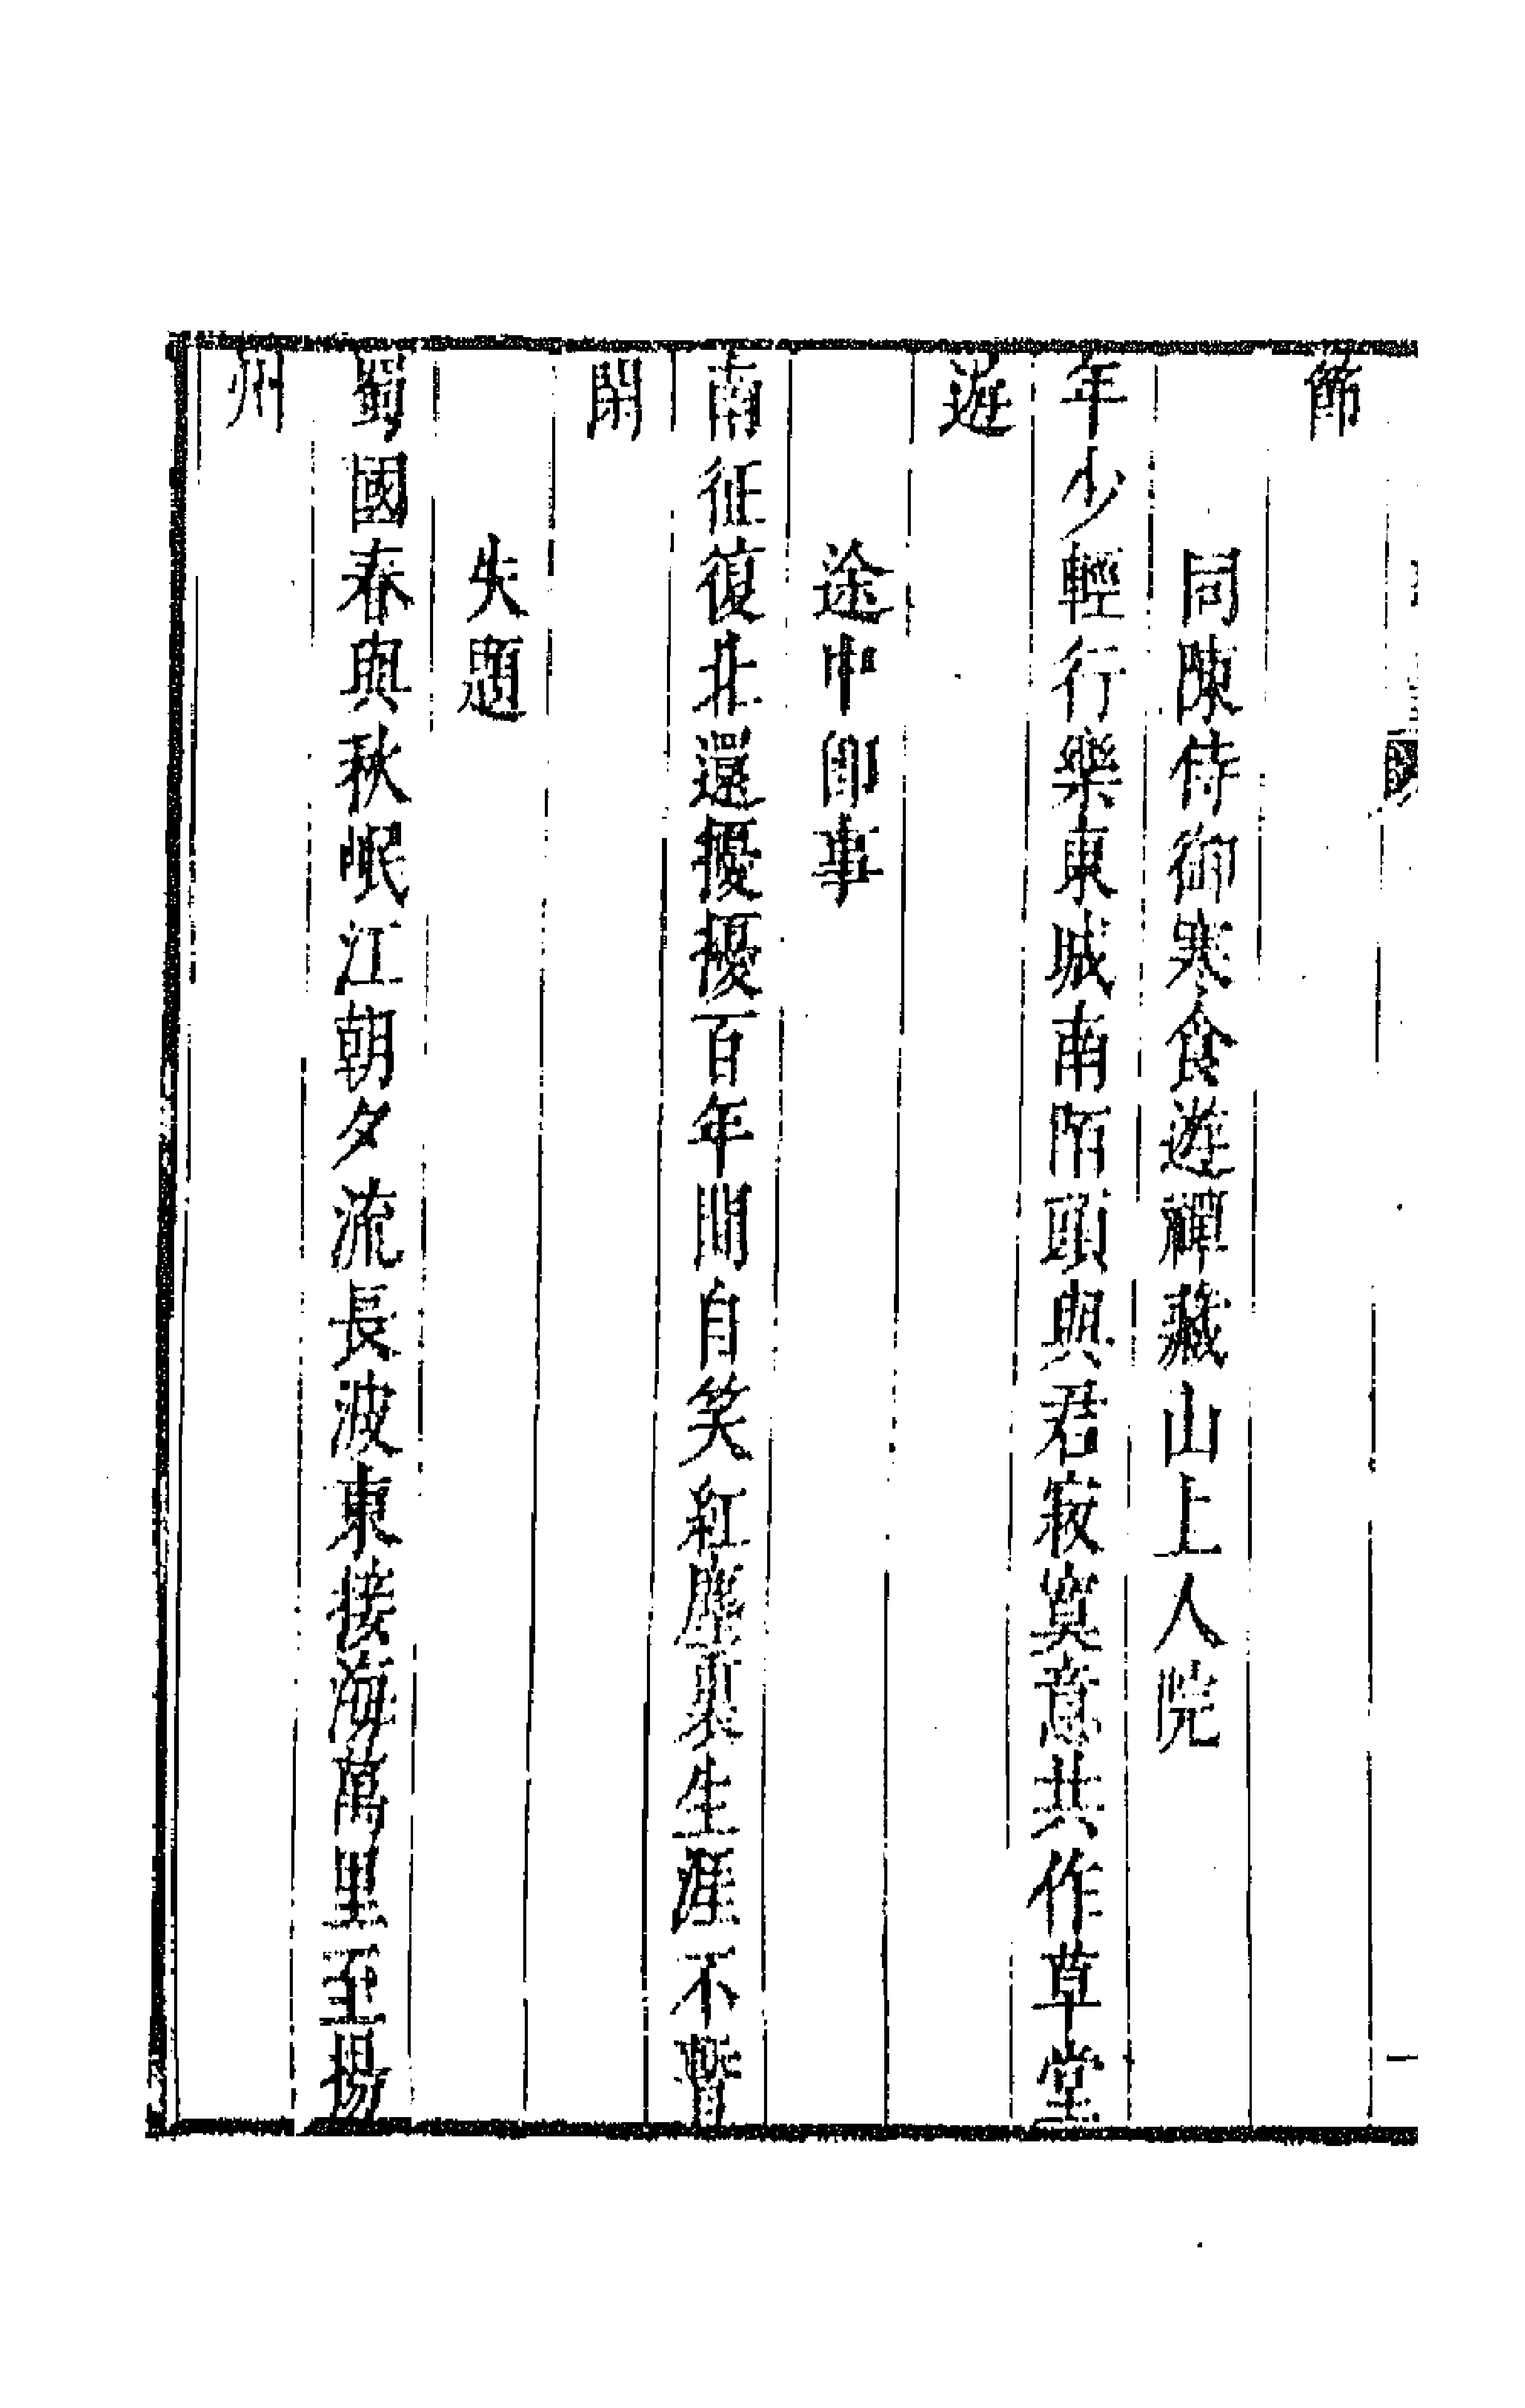 節
同陳侍御寒食遊禪藏山上人院
年少輕行樂東城南陌頭與君寂寞意共作草堂
遊
途中即事
南征復北還擾擾百年間自笑紅塵裏生涯不暫
閑
失題
蜀國春與秋岷江朝夕流長波東接海萬里至揚
州